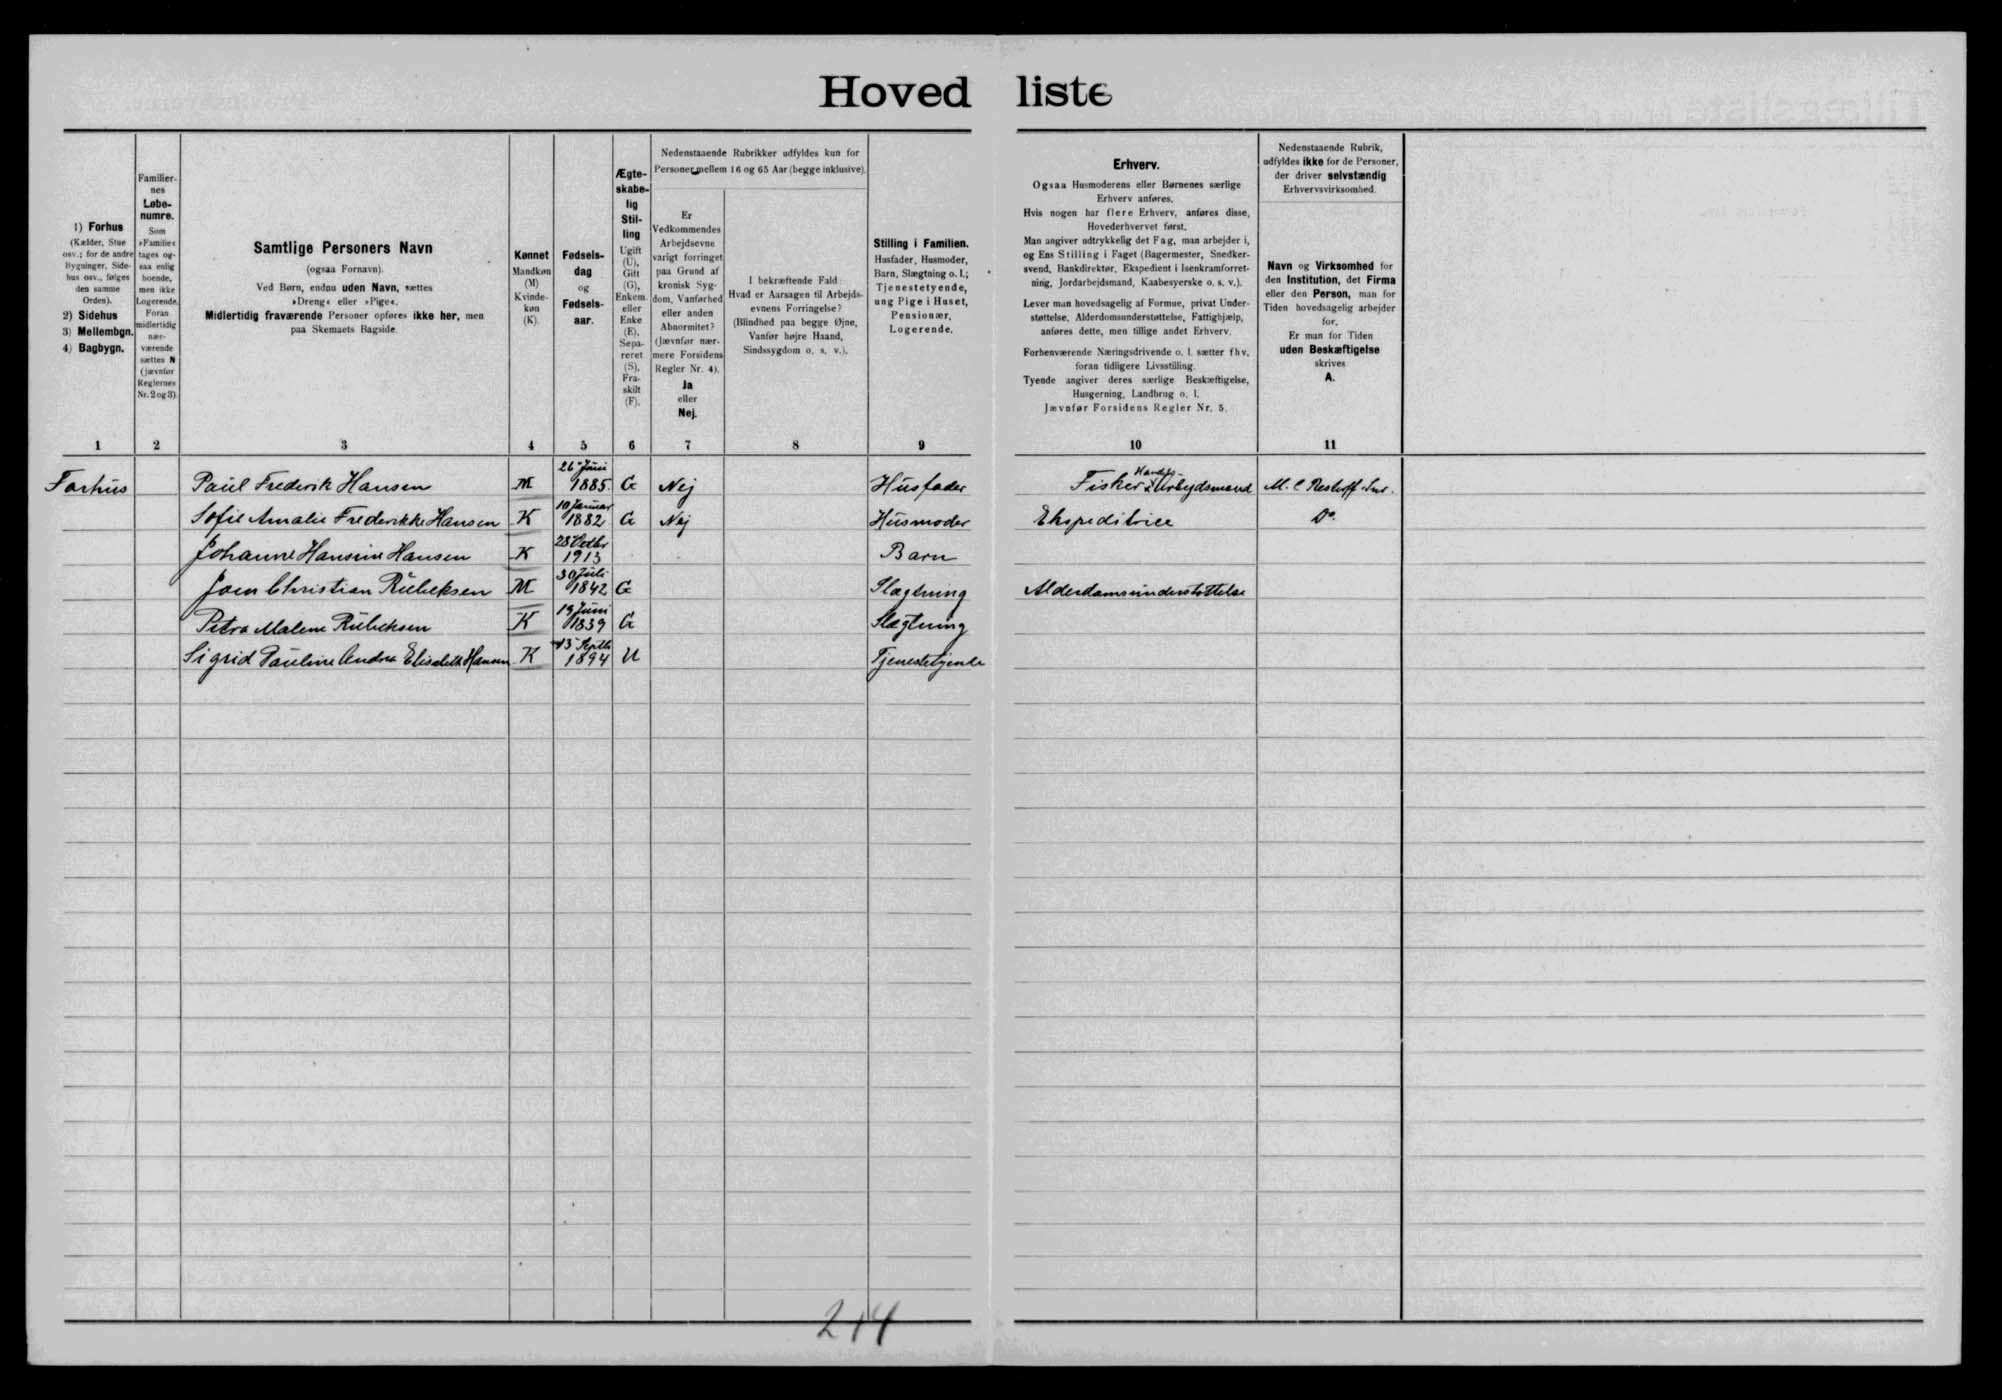 Hoved liste
1) Forhus
(Kælder, Stue
osv.; for de andre
Bygninger, Side-
hus osv., følges
den samme
Orden).
2) Sidehus
3) Mellembgn.
4) Bagbygn.
Familier-
nes
Løbe-
numre.
Som
»Familie«
tages og-
saa enlig
boende,
men ikke
Logerende.
Foran
midlertidig
nær-
værende
sættes N
(jævnfør
Reglernes
Nr. 2 og 3).
Samtlige Personers Navn
(ogsaa Fornavn).
Ved Børn, endnu uden Navn, sættes
»Dreng« eller »Pige«.
Midlertidig fraværende Personer opføres ikke her, men
paa Skemaets Bagside.
Kønnet
Mandkøn
(M)
Kvinde-
køn
(K).
Fødsels-
dag
og
Fødsels-
aar.
Ægte-
skabe-
lig
Stil-
ling
Ugift
(U),
Gift
(G),
Enkem.
eller
Enke
(E),
Sepa-
reret
(S),
Fra-
skilt
(F).
Nedenstaaende Rubrikker udfyldes kun for
Personer mellem 16 og 65 Aar (begge inklusive).
Er
Vedkommendes
Arbejdsevne
varigt forringet
paa Grund af
kronisk Syg-
dom, Vanførhed
eller anden
Abnormitet?
(Jævnfør nær-
mere Forsidens
Regler Nr. 4).
Ja
eller
Nej.
I bekræftende Fald:
Hvad er Aarsagen til Arbejds-
evnens Forringelse?
(Blindhed paa begge Øjne,
Vanfør højre Haand,
Sindssygdom o. s. v.).
Stilling i Familien.
Husfader, Husmoder,
Barn, Slægtning o. l.;
Tjenestetyende,
ung Pige i Huset,
Pensionær,
Logerende.
Erhverv.
Ogsaa Husmoderens eller Børnenes særlige
Erhverv anføres.
Hvis nogen har flere Erhverv, anføres disse,
Hovederhvervet først.
Man angiver udtrykkelig det Fag, man arbejder i,
og Ens Stilling i Faget (Bagermester, Snedker-
svend, Bankdirektør, Ekspedient i Isenkramforret-
ning, Jordarbejdsmand, Kaabesyerske o. s. v.).
Lever man hovedsagelig af Formue, privat Under-
støttelse, Alderdomsunderstøttelse, Fattighjælp,
anføres dette, men tillige andet Erhverv.
Forhenværende Næringsdrivende o. l. sætter fhv.
foran tidligere Livsstilling.
Tyende angiver deres særlige Beskæftigelse,
Husgerning, Landbrug o. l.
Jævnfør Forsidens Regler Nr. 5.
Nedenstaaende Rubrik,
udfyldes ikke for de Personer,
der driver selvstændig
Erhvervsvirksomhed.
Navn og Virksomhed for
den Institution, det Firma
eller den Person, man for
Tiden hovedsagelig arbejder
for.
Er man for Tiden
uden Beskæftigelse
skrives
A.
1 2 3 4 5 6 7 8 9 10 11
Forhus Paul Frederik Hansen M 26 Juni 1885 G Nej Husfader Fisker & Handels- Arbejdsmand M. C
Sofie Amalie Frederikke Hansen K 10 Januar 1882 G Nej Husmoder Ekspeditrice Do
Johanne Hansine Hansen K 28 Octbr 1913 Barn
Christian M 30 Juli 1842 G Slægtning Alderdomsunderstøttelse
Petra Malene K 19 Juni 1839 G Slægtning
Sigrid Pauline Andrea Elisabeth Hansen K 13 Septbr 1894 U Tjenestetyende
214